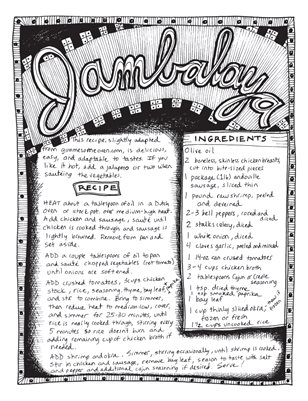 Jambalaya
This recipe, slightly adapted
from gimmesomeoven.com, is delicious,
easy, and adaptable to tastes. If you
like it hot, add a jalapeno or two when
sautéing the vegetables.
RECIPE
HEAT about a tablespoon of oil in a Dutch
oven or stock pot over medium-high heat.
Add chicken and sausage; sauté until
chicken is cooked through and sausage is
lightly browned. Remove from pan and
set aside.
ADD a couple tablespoons of oil to pan
and sauté chopped vegetables (not tomato)
until onions are softened.
ADD crushed tomatoes, 3 cups chicken
stock, rice, seasoning, thyme, bay leaf,
and stir to combine. Bring to simmer,
then reduce heat to medium-low, cover
and simmer for 25-30 minutes, until
rice is nearly cooked through, stirring every
5 minutes so rice doesn't burn and
adding remaining cup of chicken broth if
needed.
ADD shrimp and okra. Simmer, stirring occasionally, until shrimp is cooked.
Stir in chicken and sausage, remove bay leaf, season to taste with salt
and pepper and additional cajun seasoning if desired. Serve!
INGREDIENTS
Olive oil
2 boneless, skinless chicken breasts,
cut into bite-sized pieces
1 package (1 lb) andouille
sausage, sliced thin
1 pound raw shrimp, peeled
and deveined
2-3 bell peppers, cored and
diced
2 stalks celery, diced
1 white onion, diced
4 cloves garlic, peeled and minced
1 14-oz can crushed tomatoes
3-4 cups chicken broth
2 tablespoons Cajun or Creole
seasoning
1 tsp. dried thyme
smoked paprika
bay leaf
1 cup thinly sliced okra,
frozen or fresh
1½ cups uncooked rice